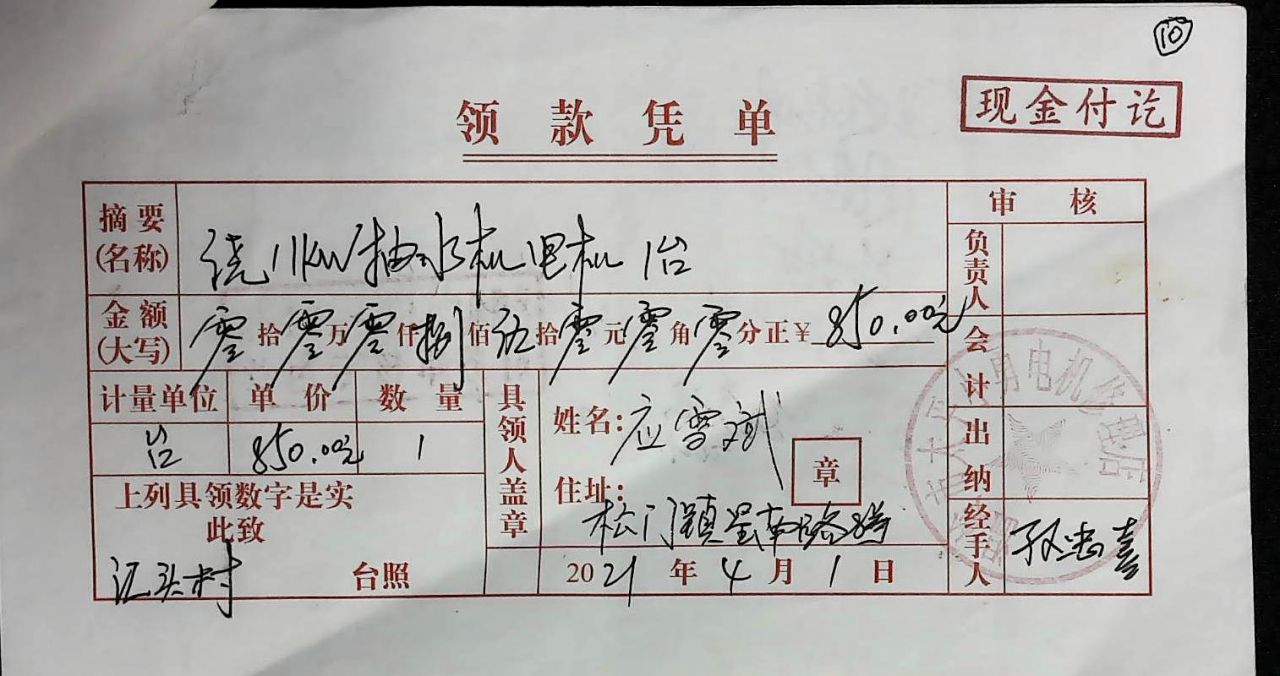 ⑩
现金付讫
领款凭单
摘要(名称) 绕11KW抽水机电机 1台
审核
金额(大写) 零拾零万零仟捌佰伍拾零元零角零分正¥850.00元
负责人
会计
计量单位 单价 数量
台 850.00元 1
具领人盖章
姓名:应雪斌
章
住址:松门镇
出纳
上列具领数字是实
此致
江头村 台照
2021年4月1日
经手人 孙忠喜
电机
店